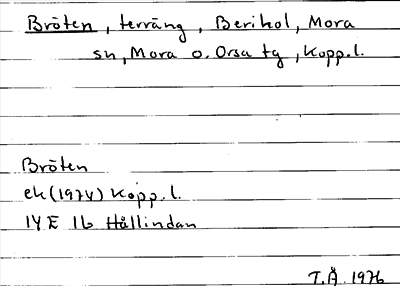 Bröten, terräng, Berihol, Mora
sn, Mora o. Orsa tg, Kopp.l.
Bröten
ek (1974) Kopp. l.
14E 1b Hållindan
T.Å. 1976